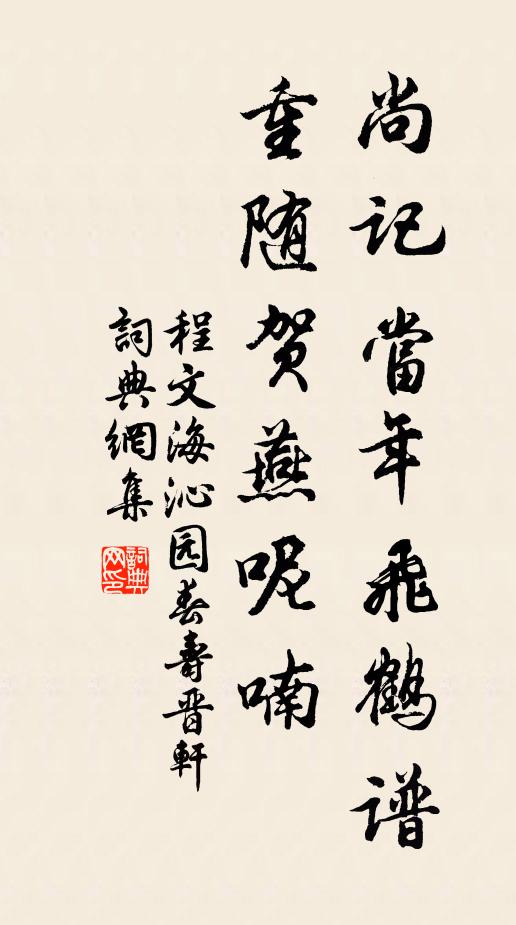 尚记當年飛鶴谱
重随贺燕呢喃
程文海沁园春壽晋軒
詞典網集
詞典网印